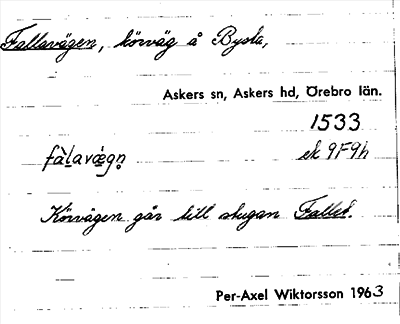 Fallavägen, körväg å Bysta,
Askers sn, Askers hd, Örebro län.
1533
fàlavǽgn̥ ek 9F9h
Körvägen går till stugan Fallet.
Per-Axel Wiktorsson 1963